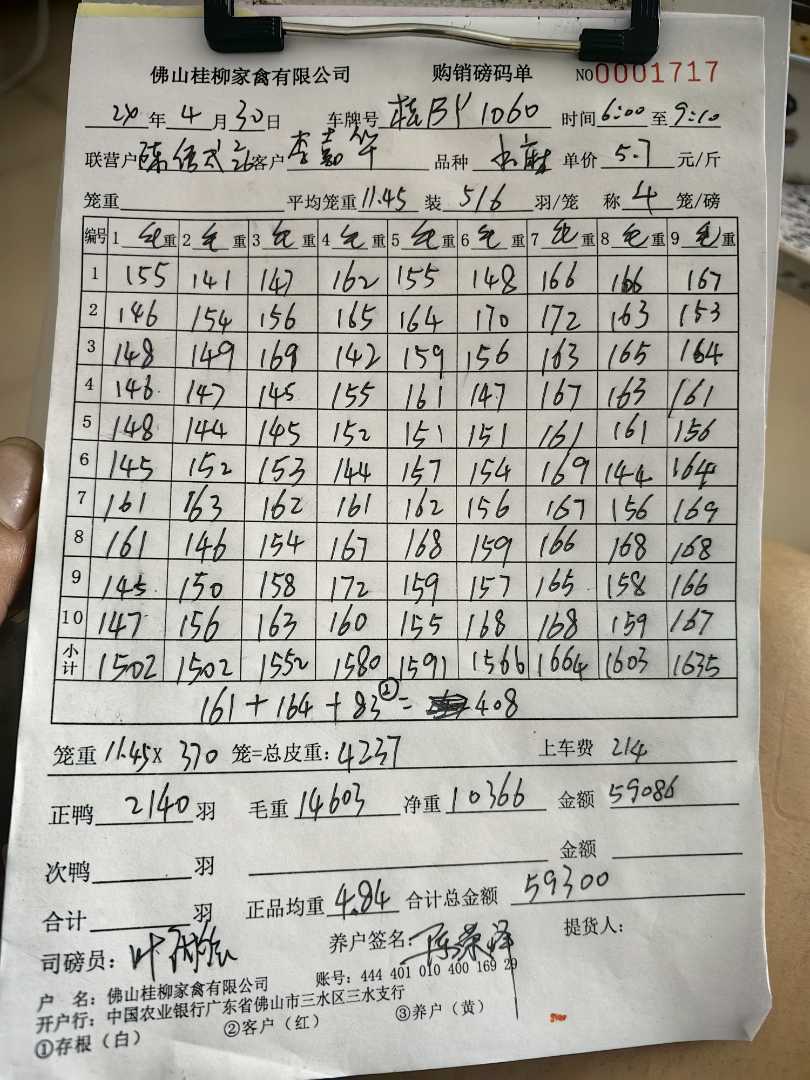 佛山桂柳家禽有限公司 购销磅码单 NO0001717
年 4 月 30 日 车牌号 桂BY1060 时间 6:00 至 9:10
联营户 客户 李 品种 单价 5.7 元/斤
笼重 平均笼重 11.45 装 5/6 羽/笼 称 4 笼/磅
编号 1 毛重 2 毛重 3 毛重 4 毛重 5 毛重 6 毛重 7 毛重 8 毛重 9 毛重
1 155 141 147 162 155 148 166 166 167
2 146 154 156 165 164 170 172 163 153
3 148 149 169 142 159 156 163 165 164
4 146 147 145 155 161 147 167 163 161
5 148 144 145 152 151 151 161 161 156
6 145 152 153 144 157 154 169 144 164
7 161 163 162 161 162 156 167 156 169
8 161 146 154 167 168 159 166 168 168
9 145 150 158 172 159 157 165 158 166
10 147 156 163 160 155 168 168 159 167
小计 1502 1502 1552 1580 1591 1566 1664 1603 1635
161+164+83②=408
笼重 11.45X 370 笼=总皮重: 4237 上车费 214
正鸭 2140 羽 毛重 14603 净重 10366 金额 59086
次鸭 羽 金额
合计 羽 正品均重 4.84 合计总金额 59300
司磅员: 叶 养户签名: 陈荣 提货人:
户 名: 佛山桂柳家禽有限公司 账号: 444 401 010 400 169 29
开户行: 中国农业银行广东省佛山市三水区三水支行
①存根(白) ②客户(红) ③养户(黄)